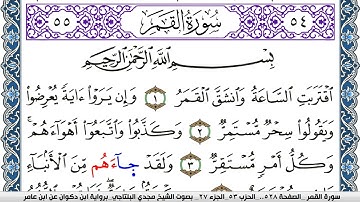 ٥٥ سُورَةُ القَمَرِ ٥٤
بِسْمِ اللَّهِ الرَّحْمَٰنِ الرَّحِيمِ
اقْتَرَبَتِ السَّاعَةُ وَانشَقَّ الْقَمَرُ ١ وَإِن يَرَوْا ءَايَةً يُعْرِضُوا
وَيَقُولُوا سِحْرٌ مُّسْتَمِرٌّ ٢ وَكَذَّبُوا وَاتَّبَعُوا أَهْوَاءَهُمْ
وَكُلُّ أَمْرٍ مُّسْتَقِرٌّ ٣ وَلَقَدْ جَاءَهُم مِّنَ الْأَنْبَاءِ
سورة القمر . الصفحة ٥٢٨ .. الحزب ٥٣ الجزء ٢٧ .. بصوت الشيخ مجدي البنتاجي. برواية ابن ذكوان عن ابن عامر